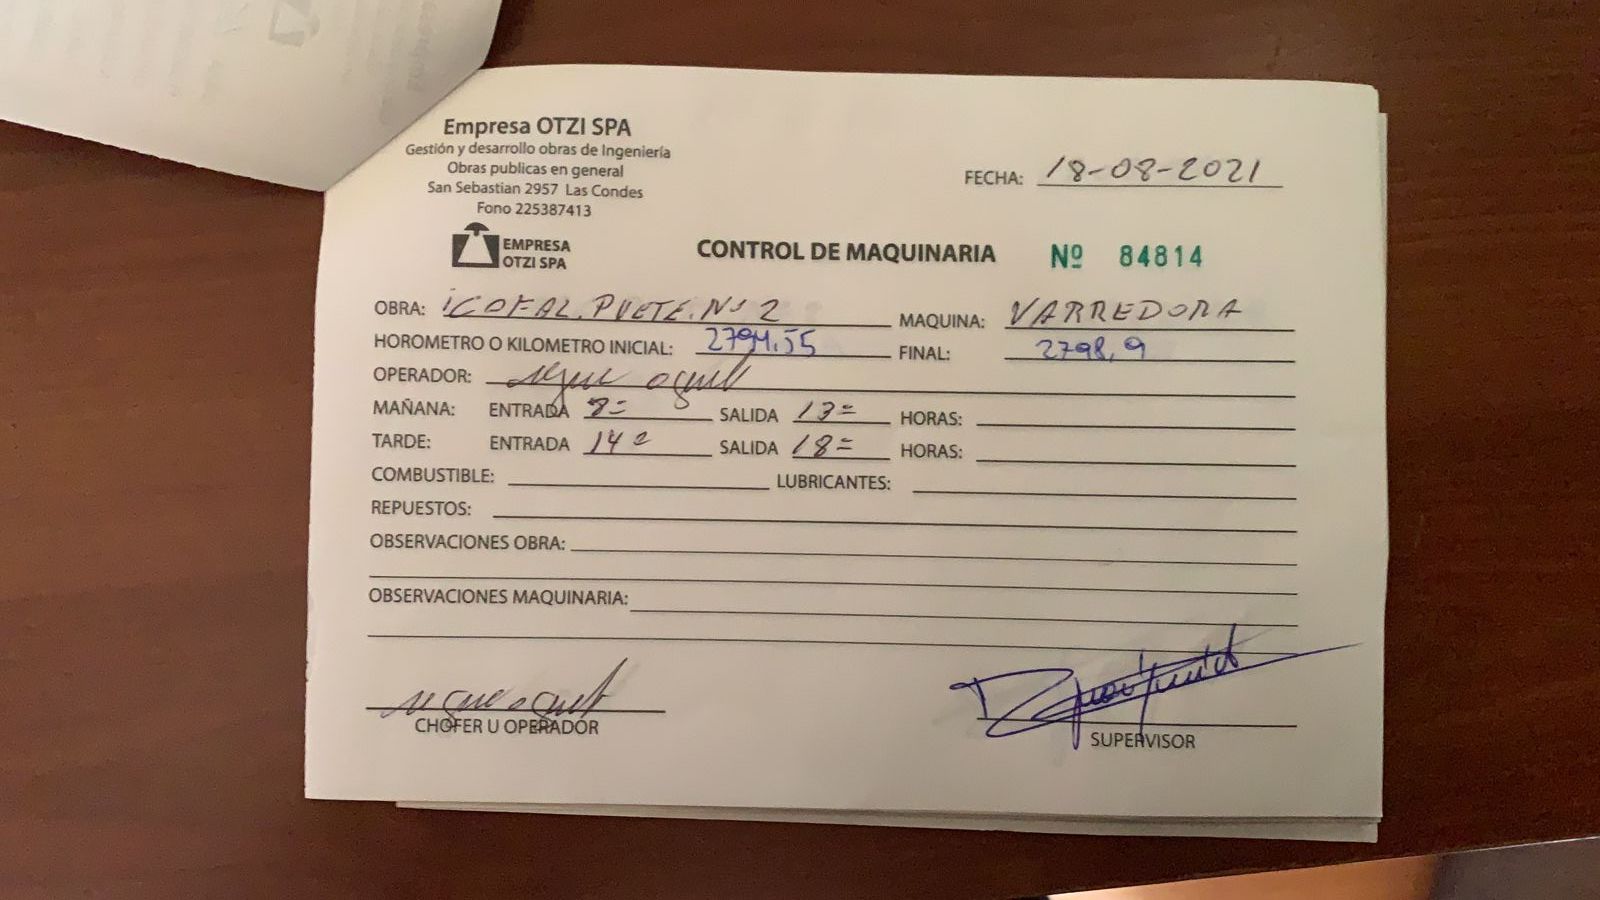 Empresa OTZI SPA
Gestión y desarrollo obras de Ingeniería
Obras publicas en general
San Sebastian 2957 Las Condes
Fono 225387413
FECHA: 18-08-2021
EMPRESA
OTZI SPA
CONTROL DE MAQUINARIA Nº 84814
OBRA: ICOFAL. PUETE. Nº 2 MAQUINA: VARREDORA
HOROMETRO O KILOMETRO INICIAL: 2794,55 FINAL: 2798,9
OPERADOR:
MAÑANA: ENTRADA 8= SALIDA 13= HORAS:
TARDE: ENTRADA 14= SALIDA 18= HORAS:
COMBUSTIBLE: LUBRICANTES:
REPUESTOS:
OBSERVACIONES OBRA:
OBSERVACIONES MAQUINARIA:
CHOFER U OPERADOR
SUPERVISOR